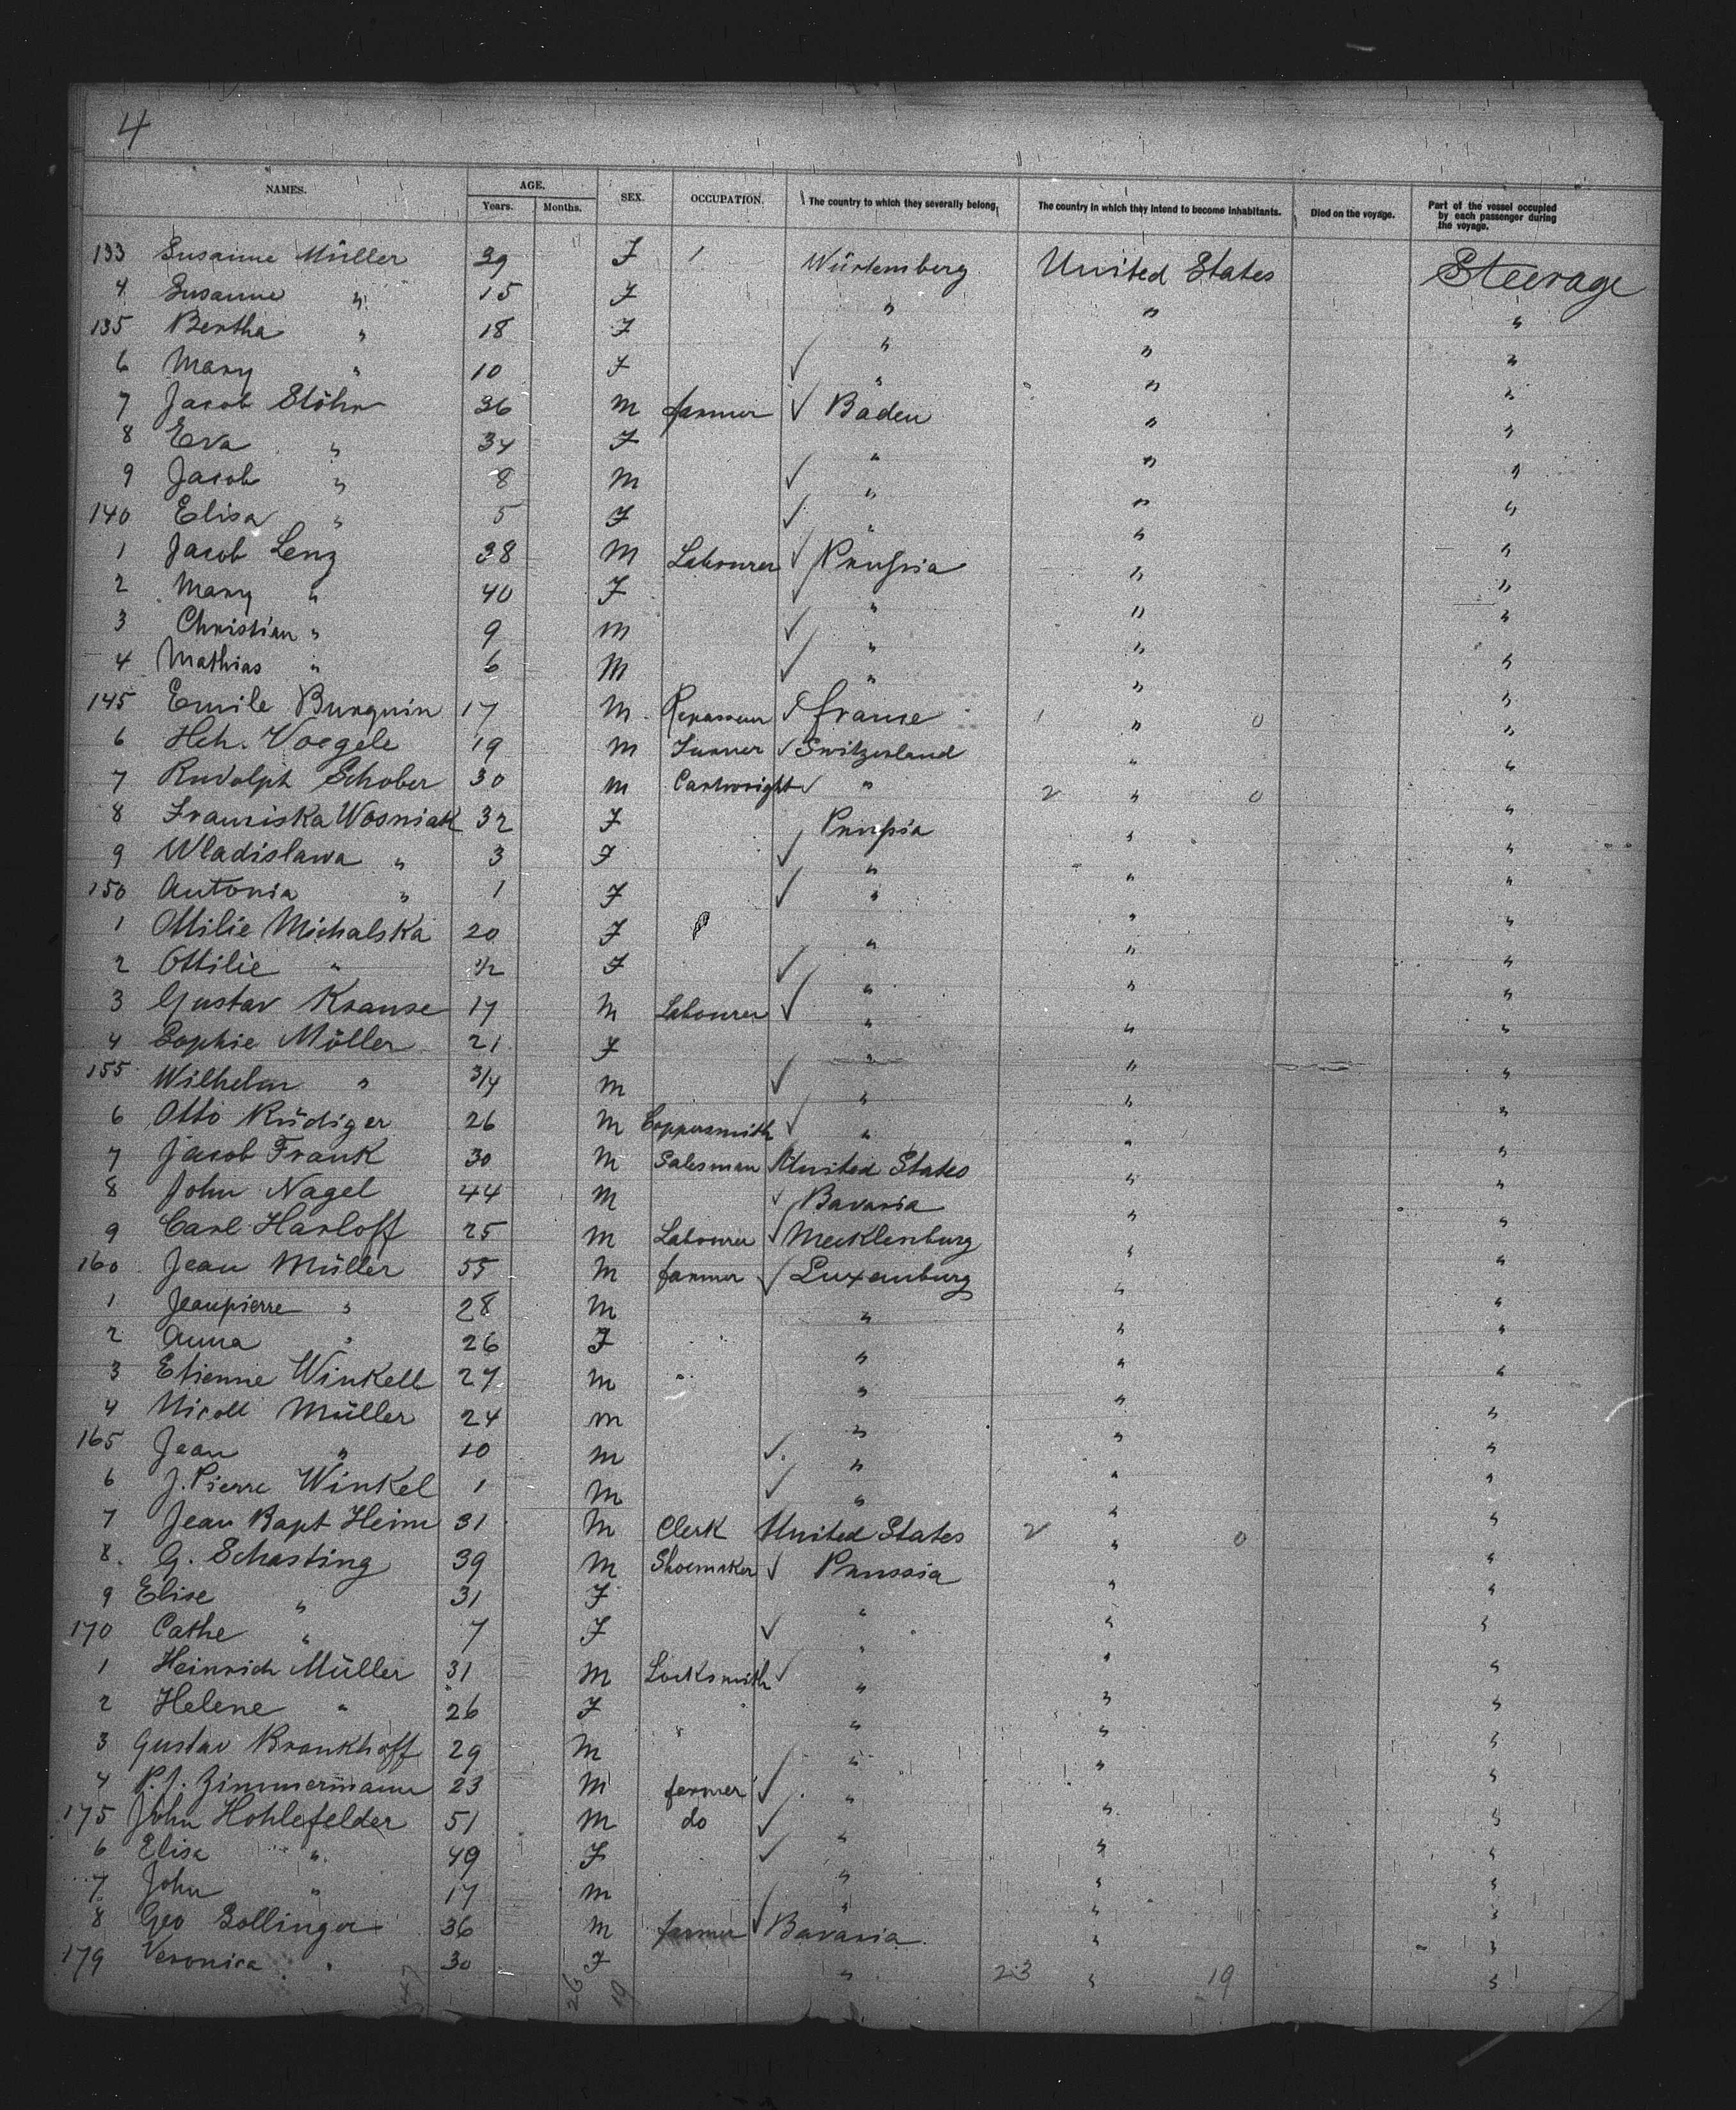 4
NAMES. AGE. SEX. OCCUPATION. The country to which they severally belong. The country in which they intend to become inhabitants. Died on the voyage. Part of the vessel occupied by each passenger during the voyage.
Years. Months.
133 Susanne Müller 39 F Würtemberg United States Steerage
4 Susanne " 15 F " " "
135 Bertha " 18 F " " "
6 Mary " 10 F " " "
7 Jacob Stöhr 36 M farmer Baden " "
8 Eva " 34 F " " "
9 Jacob " 8 M " " "
140 Elisa " 5 F " " "
1 Jacob Lenz 38 M Labourer Prussia " "
2 Mary " 40 F " " "
3 Christian " 9 M " " "
4 Mathias " 6 M " " "
145 Emile Burquin 17 M Repasseur france 1 " 0 "
6 Hch. Voegele 19 M Turner Switzerland " "
7 Rudolph Schober 30 M Cartwright " 2 " 0 "
8 Franziska Wosniak 32 F Prussia " "
9 Wladislawa " 3 F " " "
150 Antonia " 1 F " " "
1 Ottilie Michalska 20 F " " "
2 Ottilie " 1/2 F " " "
3 Gustav Krause 17 M Labourer " " "
4 Sophie Möller 21 F " " "
155 Wilhelm " 3/4 M " " "
6 Otto Rüdiger 26 M Coppersmith " " "
7 Jacob Frank 30 M Salesman United States " "
8 John Nagel 44 M Bavaria " "
9 Carl Harloff 25 M Labourer Mecklenburg " "
160 Jean Müller 55 M farmer Luxemburg " "
1 Jeanpierre " 28 M " " "
2 Anna " 26 F " " "
3 Etienne Winkell 27 M " " " "
4 Nicoll Müller 24 M " " "
165 Jean " 10 M " " "
6 J. Pierre Winkel 1 M " " "
7 Jean Bapt Heim 31 M Clerk United States 2 " 0 "
8. G. Schasting 39 M Shoemaker Prussia " "
9 Elise " 31 F " " "
170 Cathe " 7 F " " "
1 Heinrich Müller 31 M Locksmith " " "
2 Helene " 26 F " " "
3 Gustav Bronkhoff 29 M " " " "
4 P. J. Zimmermann 23 M farmer " " "
175 John Hohlefelder 51 M do " " "
6 Elisa " 49 F " " "
7 John " 17 M " " "
8 Geo Sollinger 36 M farmer Bavaria " "
179 Veronica " 30 F " 23 " 19 "
47 26 19